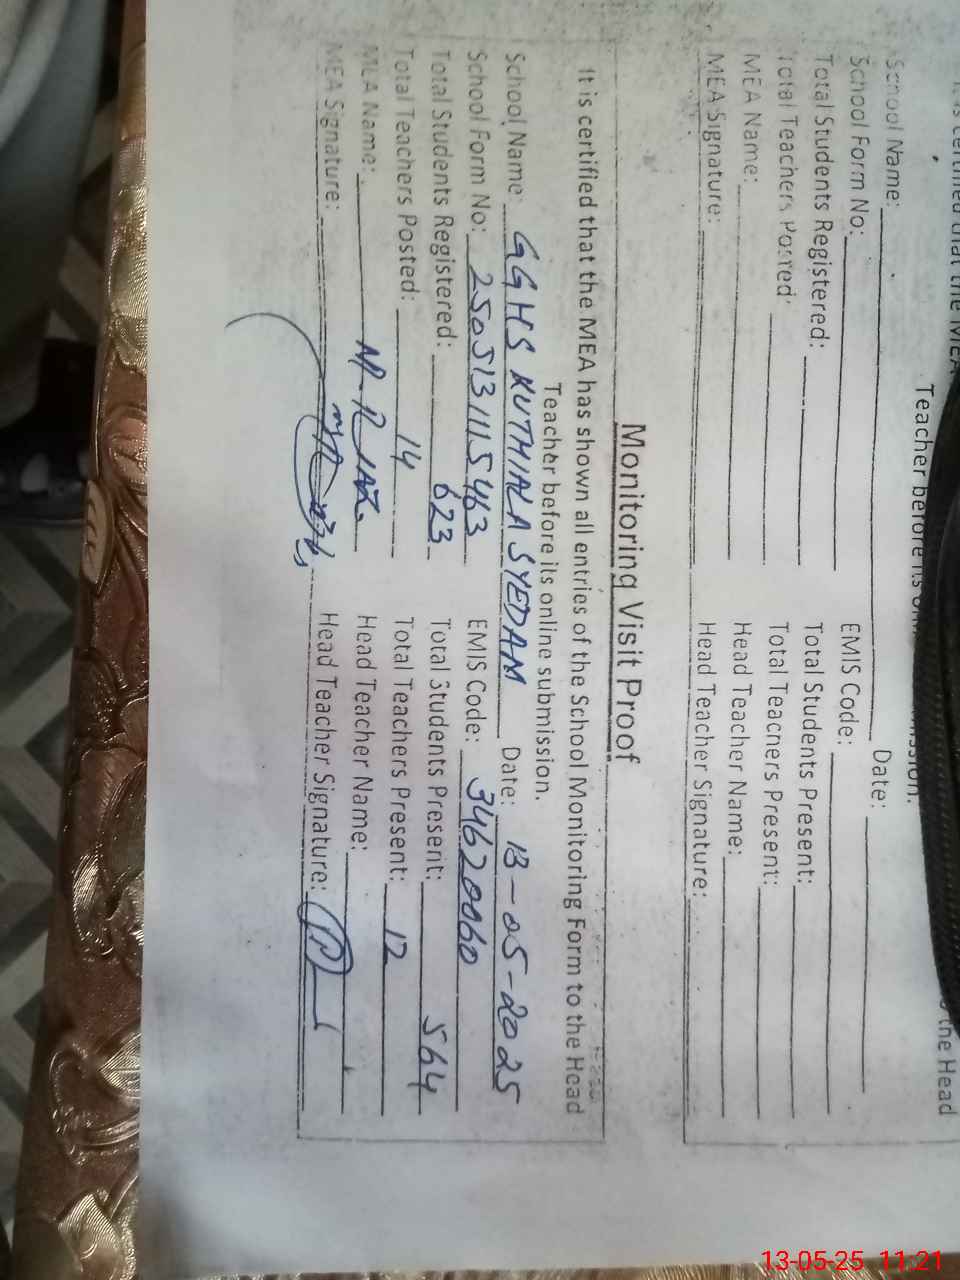 Teacher before its
the Head
School Name: Date:
School Form No: EMIS Code:
Total Students Registered: Total Students Present:
Total Teachers Posted: Total Teachers Present:
MEA Name: Head Teacher Name:
MEA Signature: Head Teacher Signature:
Monitoring Visit Proof
It is certified that the MEA has shown all entries of the School Monitoring Form to the Head
Teacher before its online submission.
School Name: GGHS KUTHIALA SYEDAM Date: 13-05-2025
School Form No: 2505131115463 EMIS Code: 34620060
Total Students Registered: 623 Total Students Present: 564
Total Teachers Posted: 14 Total Teachers Present: 12
MEA Name: M. Riaz Head Teacher Name:
MEA Signature: Head Teacher Signature:
13-05-25 11:21